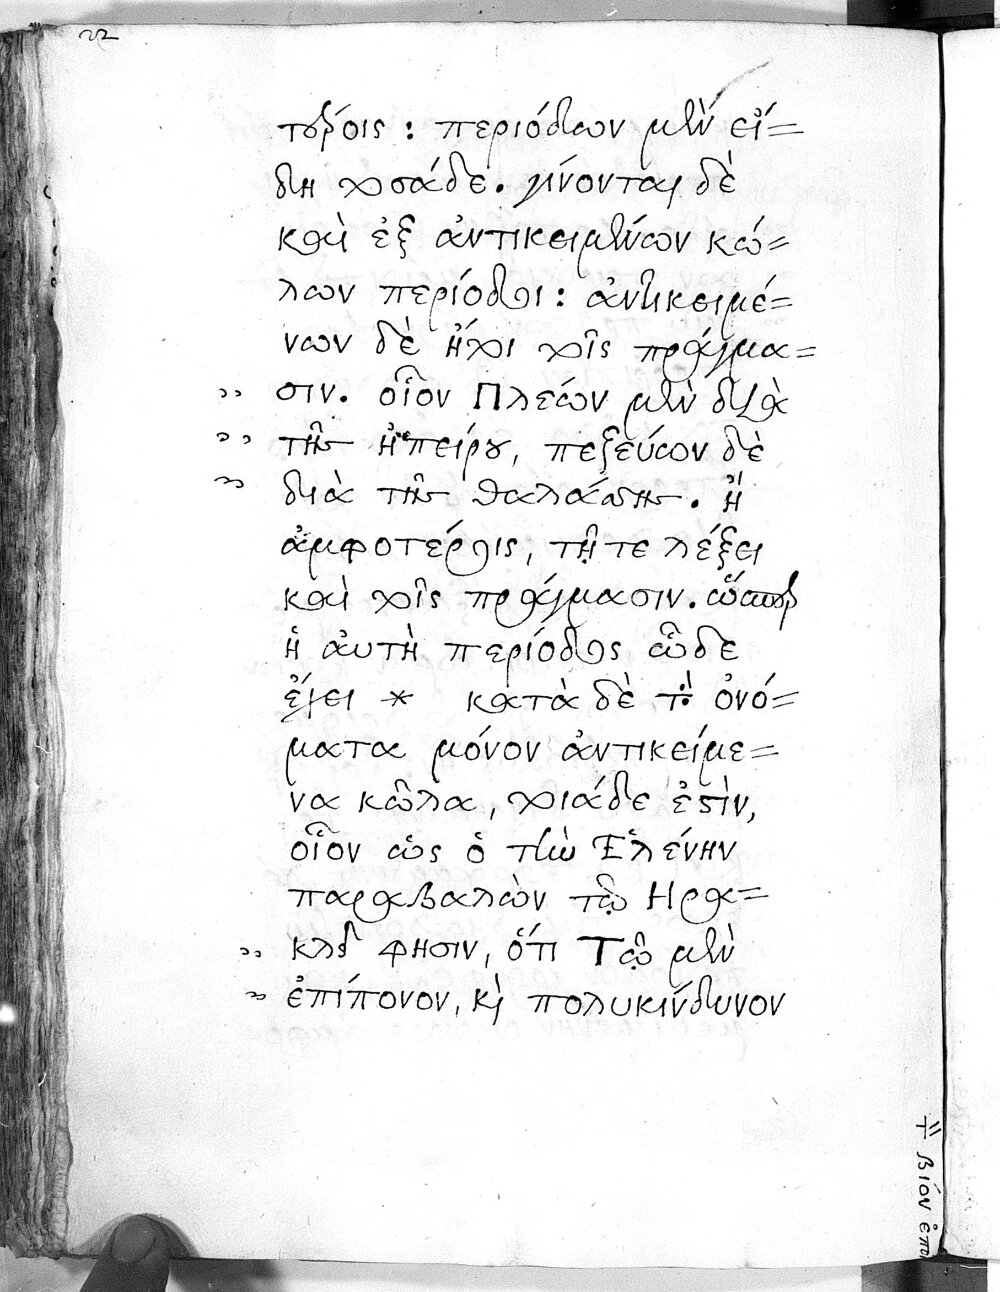 22
τούτοις : περιόδων μὲν εἴ=
δη τοσάδε. γίνονται δὲ
καὶ ἐξ ἀντικειμένων κώ=
λων περίοδοι : ἀντικειμέ=
νων δὲ ἤτοι τοῖς πράγμα=
σιν. οἷον Πλέων μὲν διὰ
τῆς ἠπείρου, πεζεύων δὲ
διὰ τῆς θαλάσσης. ἢ
ἀμφοτέροις, τῇ τε λέξει
καὶ τοῖς πράγμασιν. ὥσπερ
ἡ αὐτὴ περίοδος ὧδε
ἔχει * κατὰ δὲ τὰ ὀνό=
ματα μόνον ἀντικείμε=
να κῶλα, τοιάδε ἐστὶν,
οἷον ὡς ὁ τὴν Ἑλένην
παραβαλὼν τῷ Ηρα=
κλεῖ φησιν, ὅτι Τῷ μὲν
ἐπίπονον, κὶ πολυκίνδυνον
βίον ἐπο